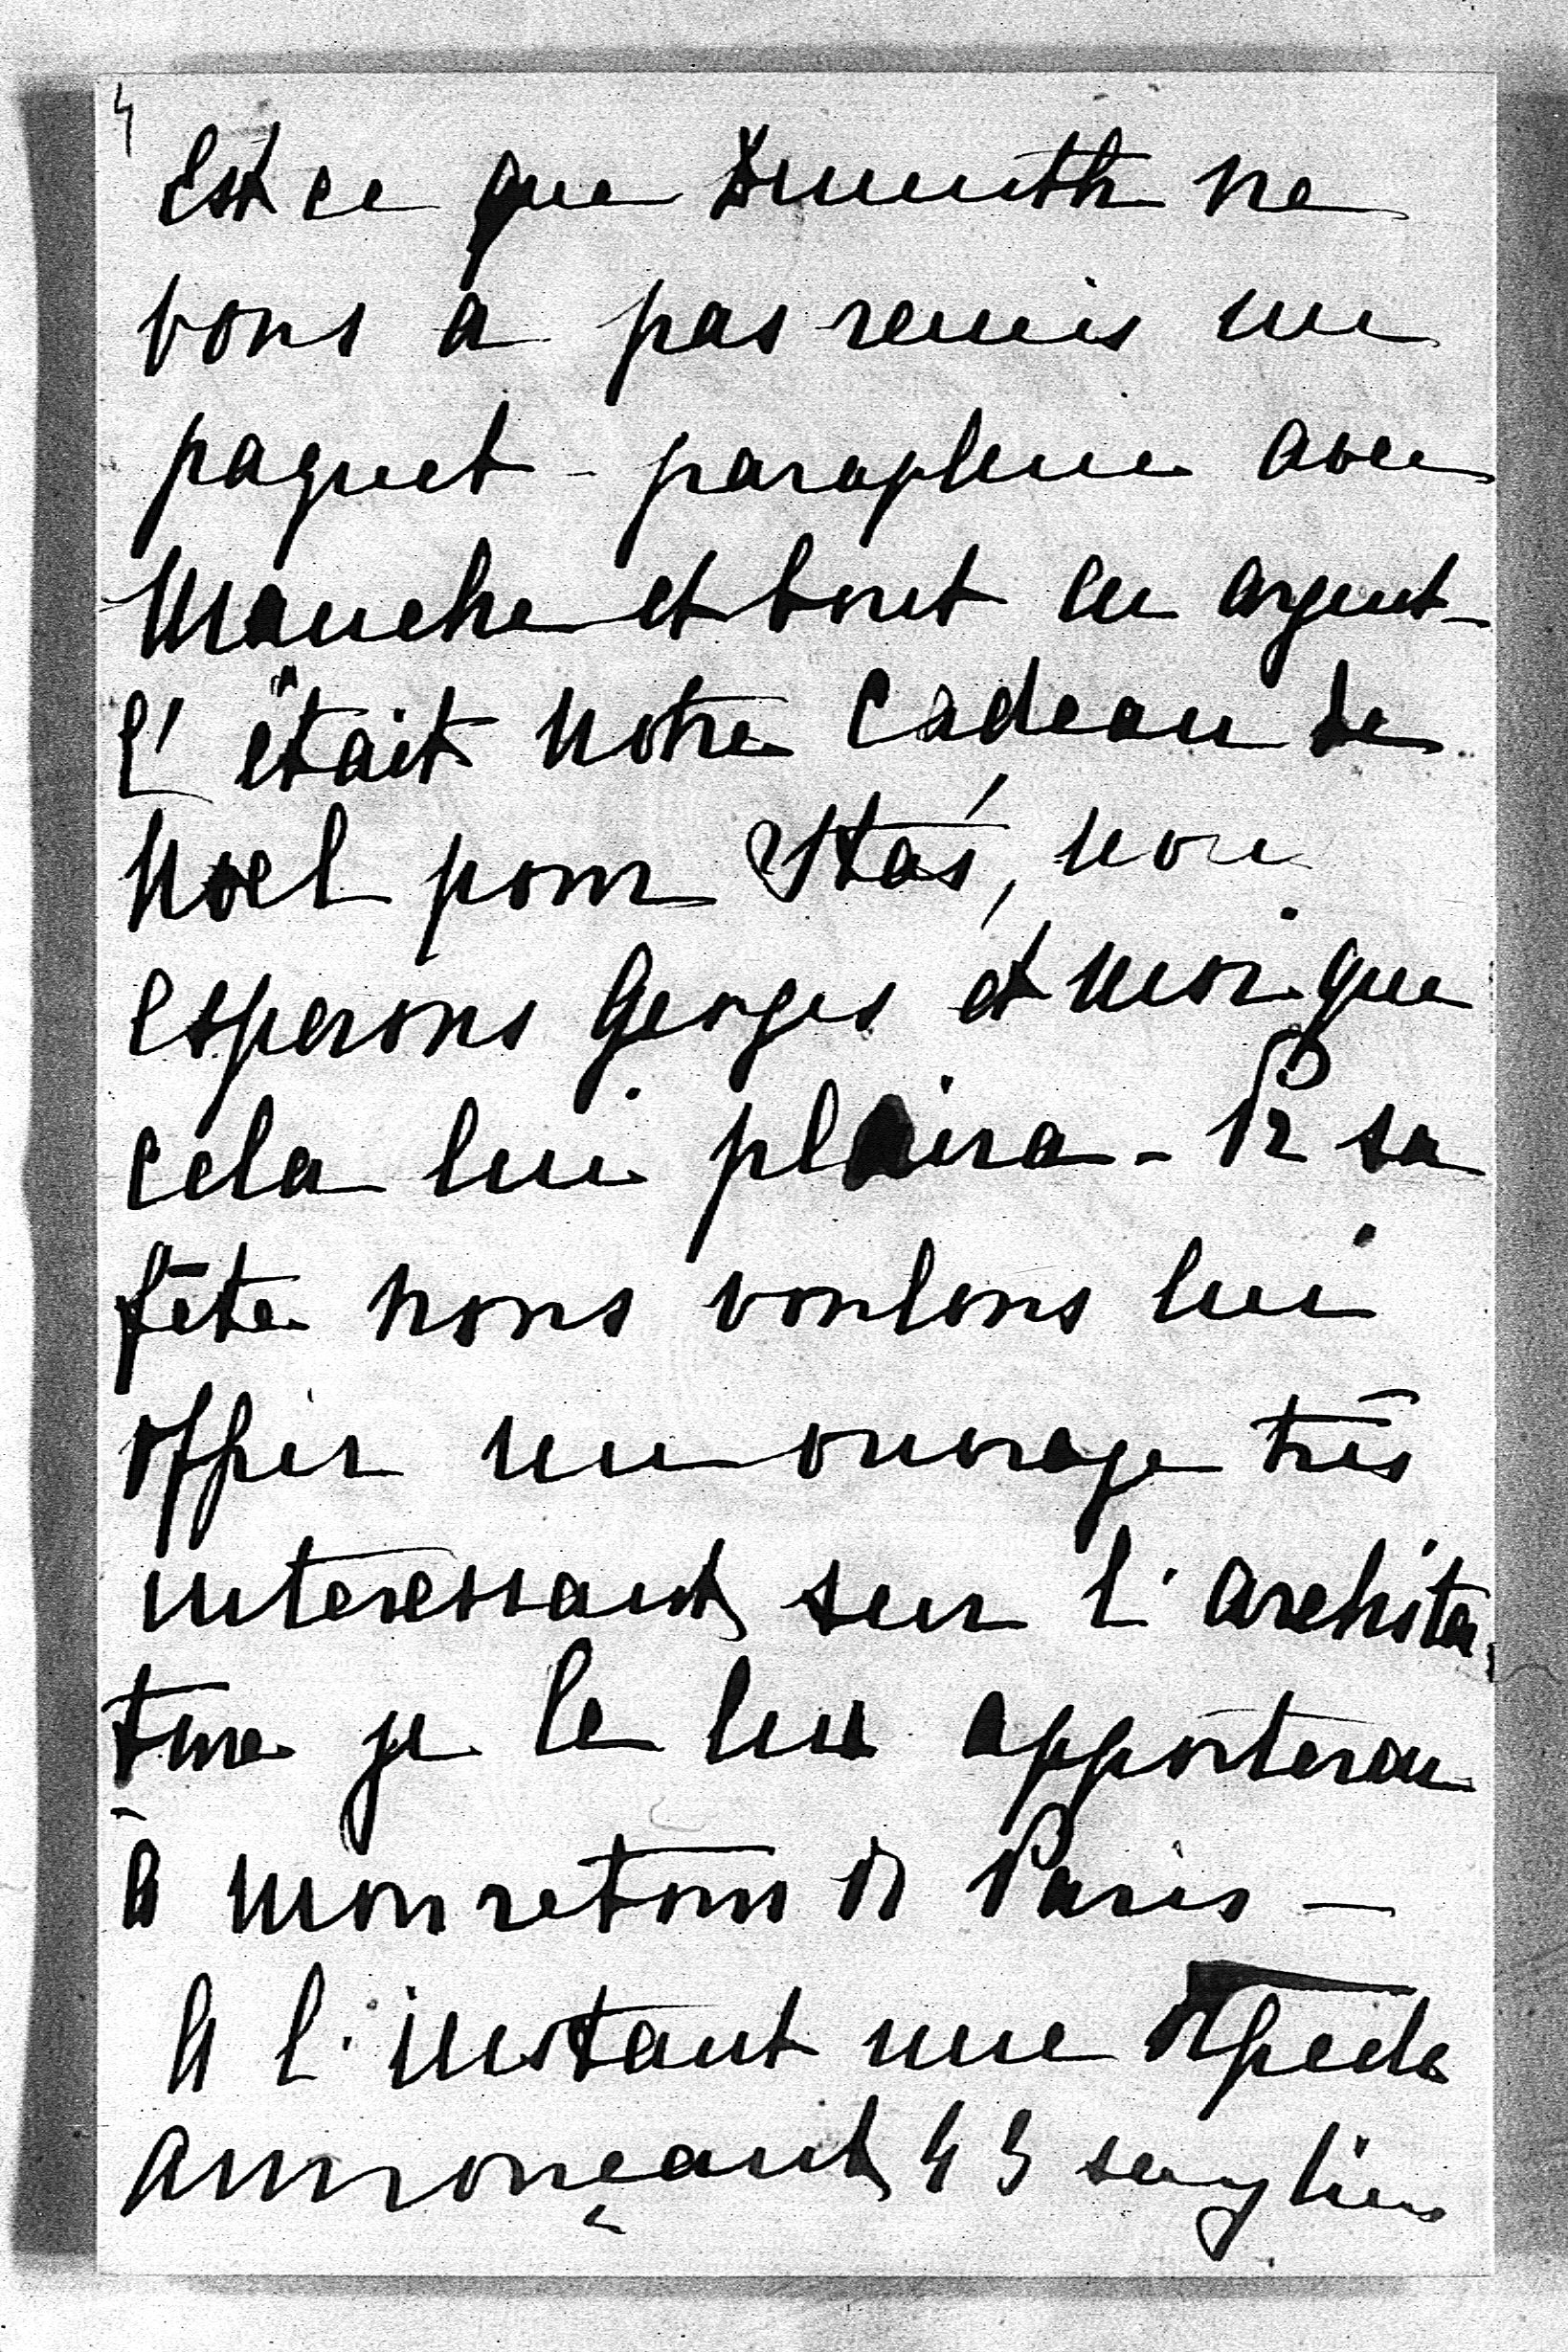 4
Est ce que ne
vous a pas remis un
paquet - parapluie avec
Manche et bout en argent -
C'était notre Cadeau de
Noel pour Staś, nous
esperons Georges et moi que
cela lui plaira - Pr sa
fête nous voulons lui
offrir un ouvrage très
interessant sur l'architec
ture je le lui apporterai
à mon retour de Paris -
A l'instant une dépêche
annonçant 43 sangliers